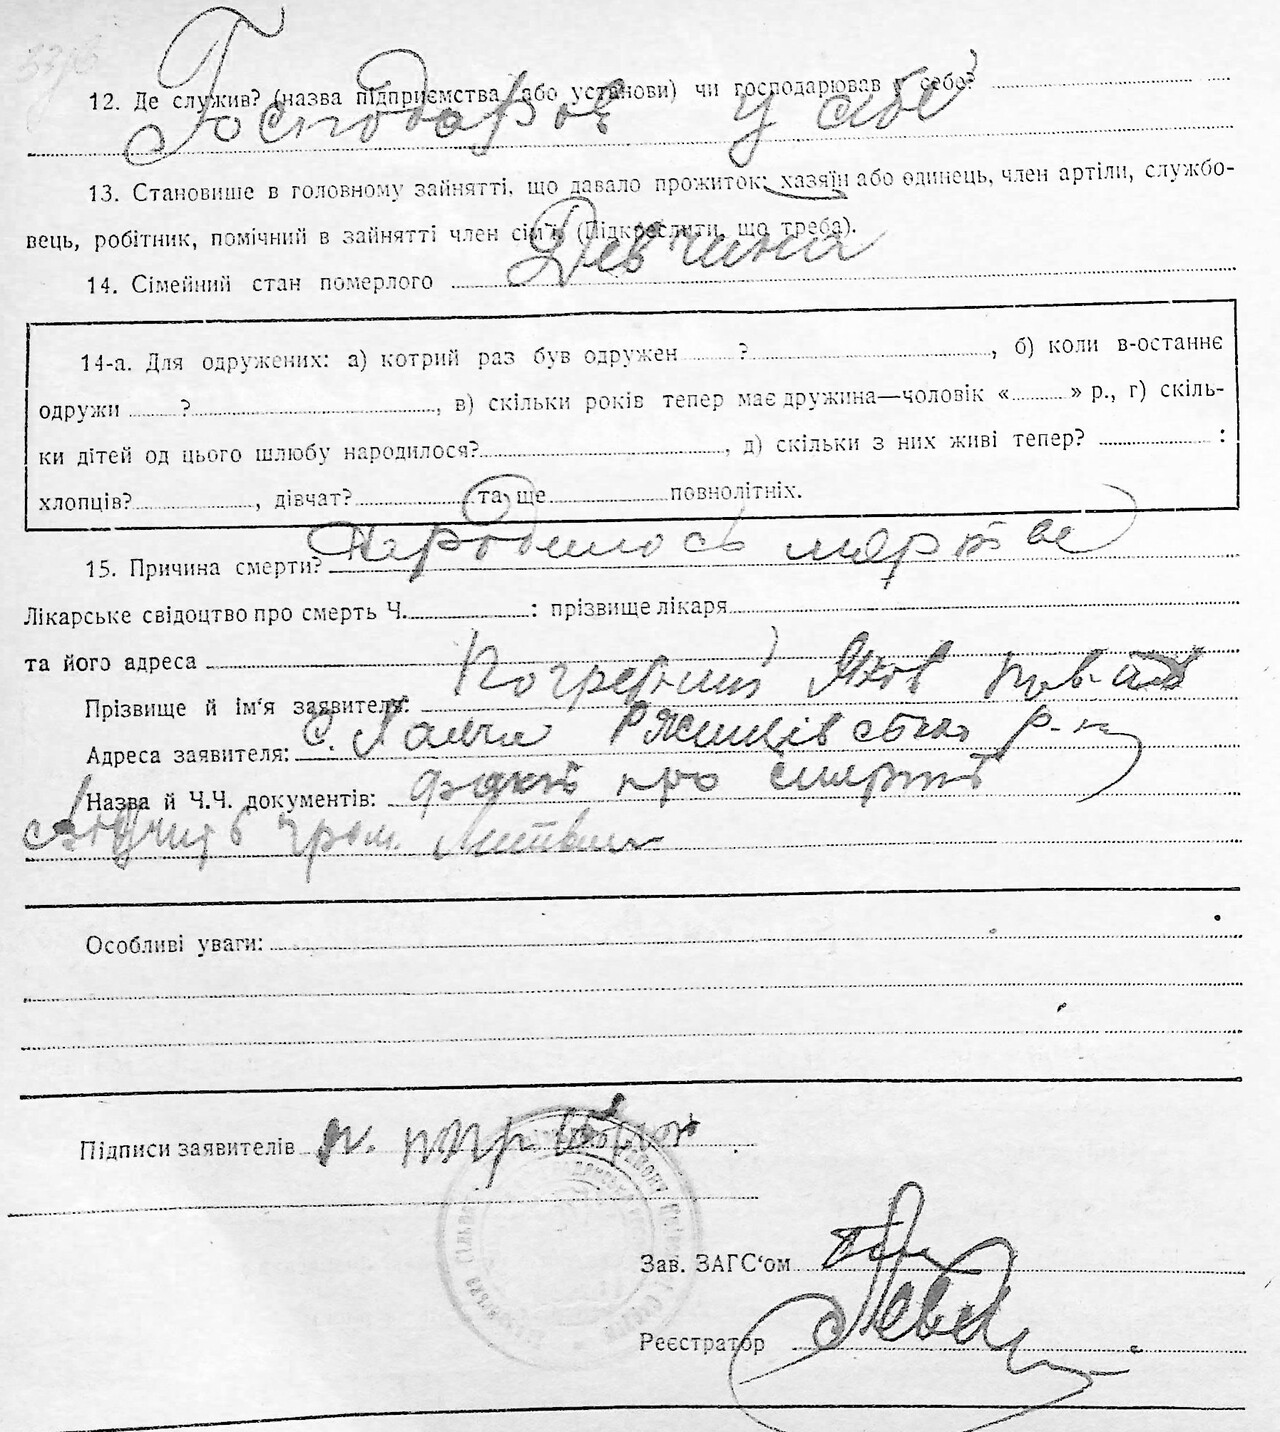 12. Де служив? (назва підприємства або установи) чи господарював у себе?
Господарював у себе
13. Становише в головному зайнятті, що давало прожиток: хазяїн або одинець, член артіли, службо-
вець, робітник, помічний в зайнятті член сім'ї. (Підкреслити, що треба).
14. Сімейний стан померлого Девчина
14-а. Для одружених: а) котрий раз був одружен ? , б) коли в-останнє
одружи ? , в) скільки років тепер має дружина—чоловік « » р., г) скіль-
ки дітей од цього шлюбу народилося? , д) скільки з них живі тепер? :
хлопців? , дівчат? та ще повнолітніх.
15. Причина смерти? Народилось мертве
Лікарське свідоцтво про смерть Ч. : прізвище лікаря
та його адреса
Прізвище й ім'я заявителя: Погребний Яков
Адреса заявителя: с. р-н
Назва й Ч.Ч. документів: факт про смерть
гром. Литвин
Особливі уваги:
Підписи заявителів
Зав. ЗАГС'ом
Реєстратор